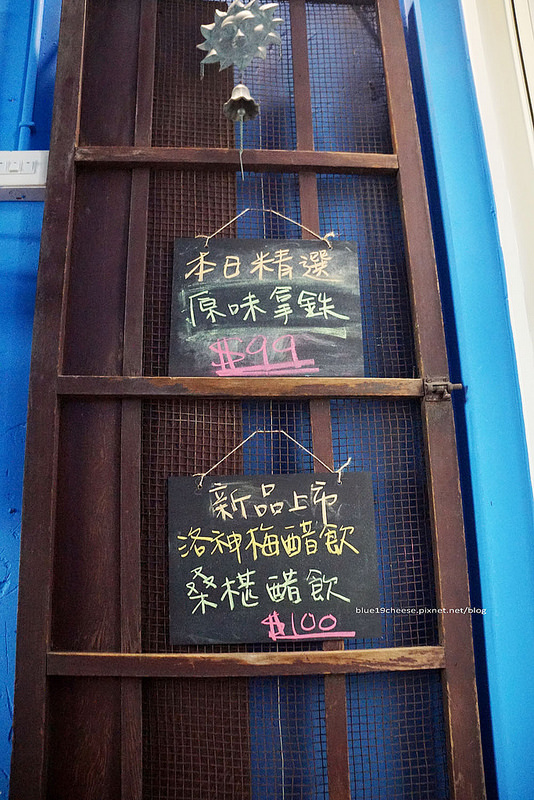 本日精選
原味拿鉄
$99
新品上市
洛神梅醋飲
桑椹醋飲
$100
blue19cheese.pixnet.net/blog